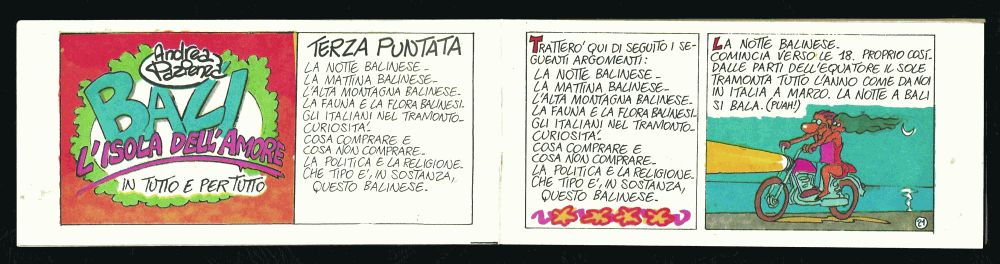 Andrea
Pazienza
BALI
L'ISOLA DELL'AMORE
IN TUTTO E PER TUTTO
TERZA PUNTATA
LA NOTTE BALINESE-
LA MATTINA BALINESE-
L'ALTA MONTAGNA BALINESE-
LA FAUNA E LA FLORA BALINESI-
GLI ITALIANI NEL TRAMONTO-
CURIOSITA'-
COSA COMPRARE E
COSA NON COMPRARE-
LA POLITICA E LA RELIGIONE-
CHE TIPO E', IN SOSTANZA,
QUESTO BALINESE-
TRATTERO' QUI DI SEGUITO I SE-
GUENTI ARGOMENTI:
LA NOTTE BALINESE-
LA MATTINA BALINESE-
L'ALTA MONTAGNA BALINESE-
LA FAUNA E LA FLORA BALINESI-
GLI ITALIANI NEL TRAMONTO-
CURIOSITA'-
COSA COMPRARE E
COSA NON COMPRARE-
LA POLITICA E LA RELIGIONE-
CHE TIPO E', IN SOSTANZA,
QUESTO BALINESE-
LA NOTTE BALINESE-
COMINCIA VERSO LE 18. PROPRIO COSÍ-
DALLE PARTI DELL'EQUATORE IL SOLE
TRAMONTA TUTTO L'ANNO COME DA NOI
IN ITALIA A MARZO. LA NOTTE A BALI
SI BALA. (PUAH!)
21